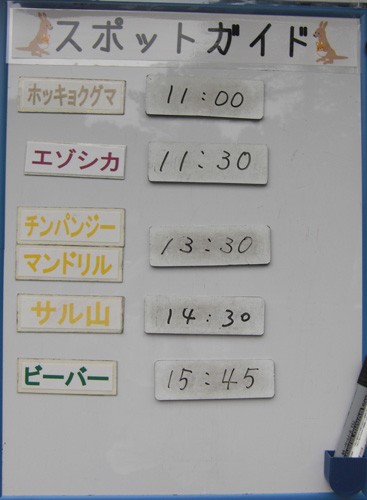 スポットガイド
ホッキョクグマ 11:00
エゾシカ 11:30
チンパンジー
マンドリル 13:30
サル山 14:30
ビーバー 15:45